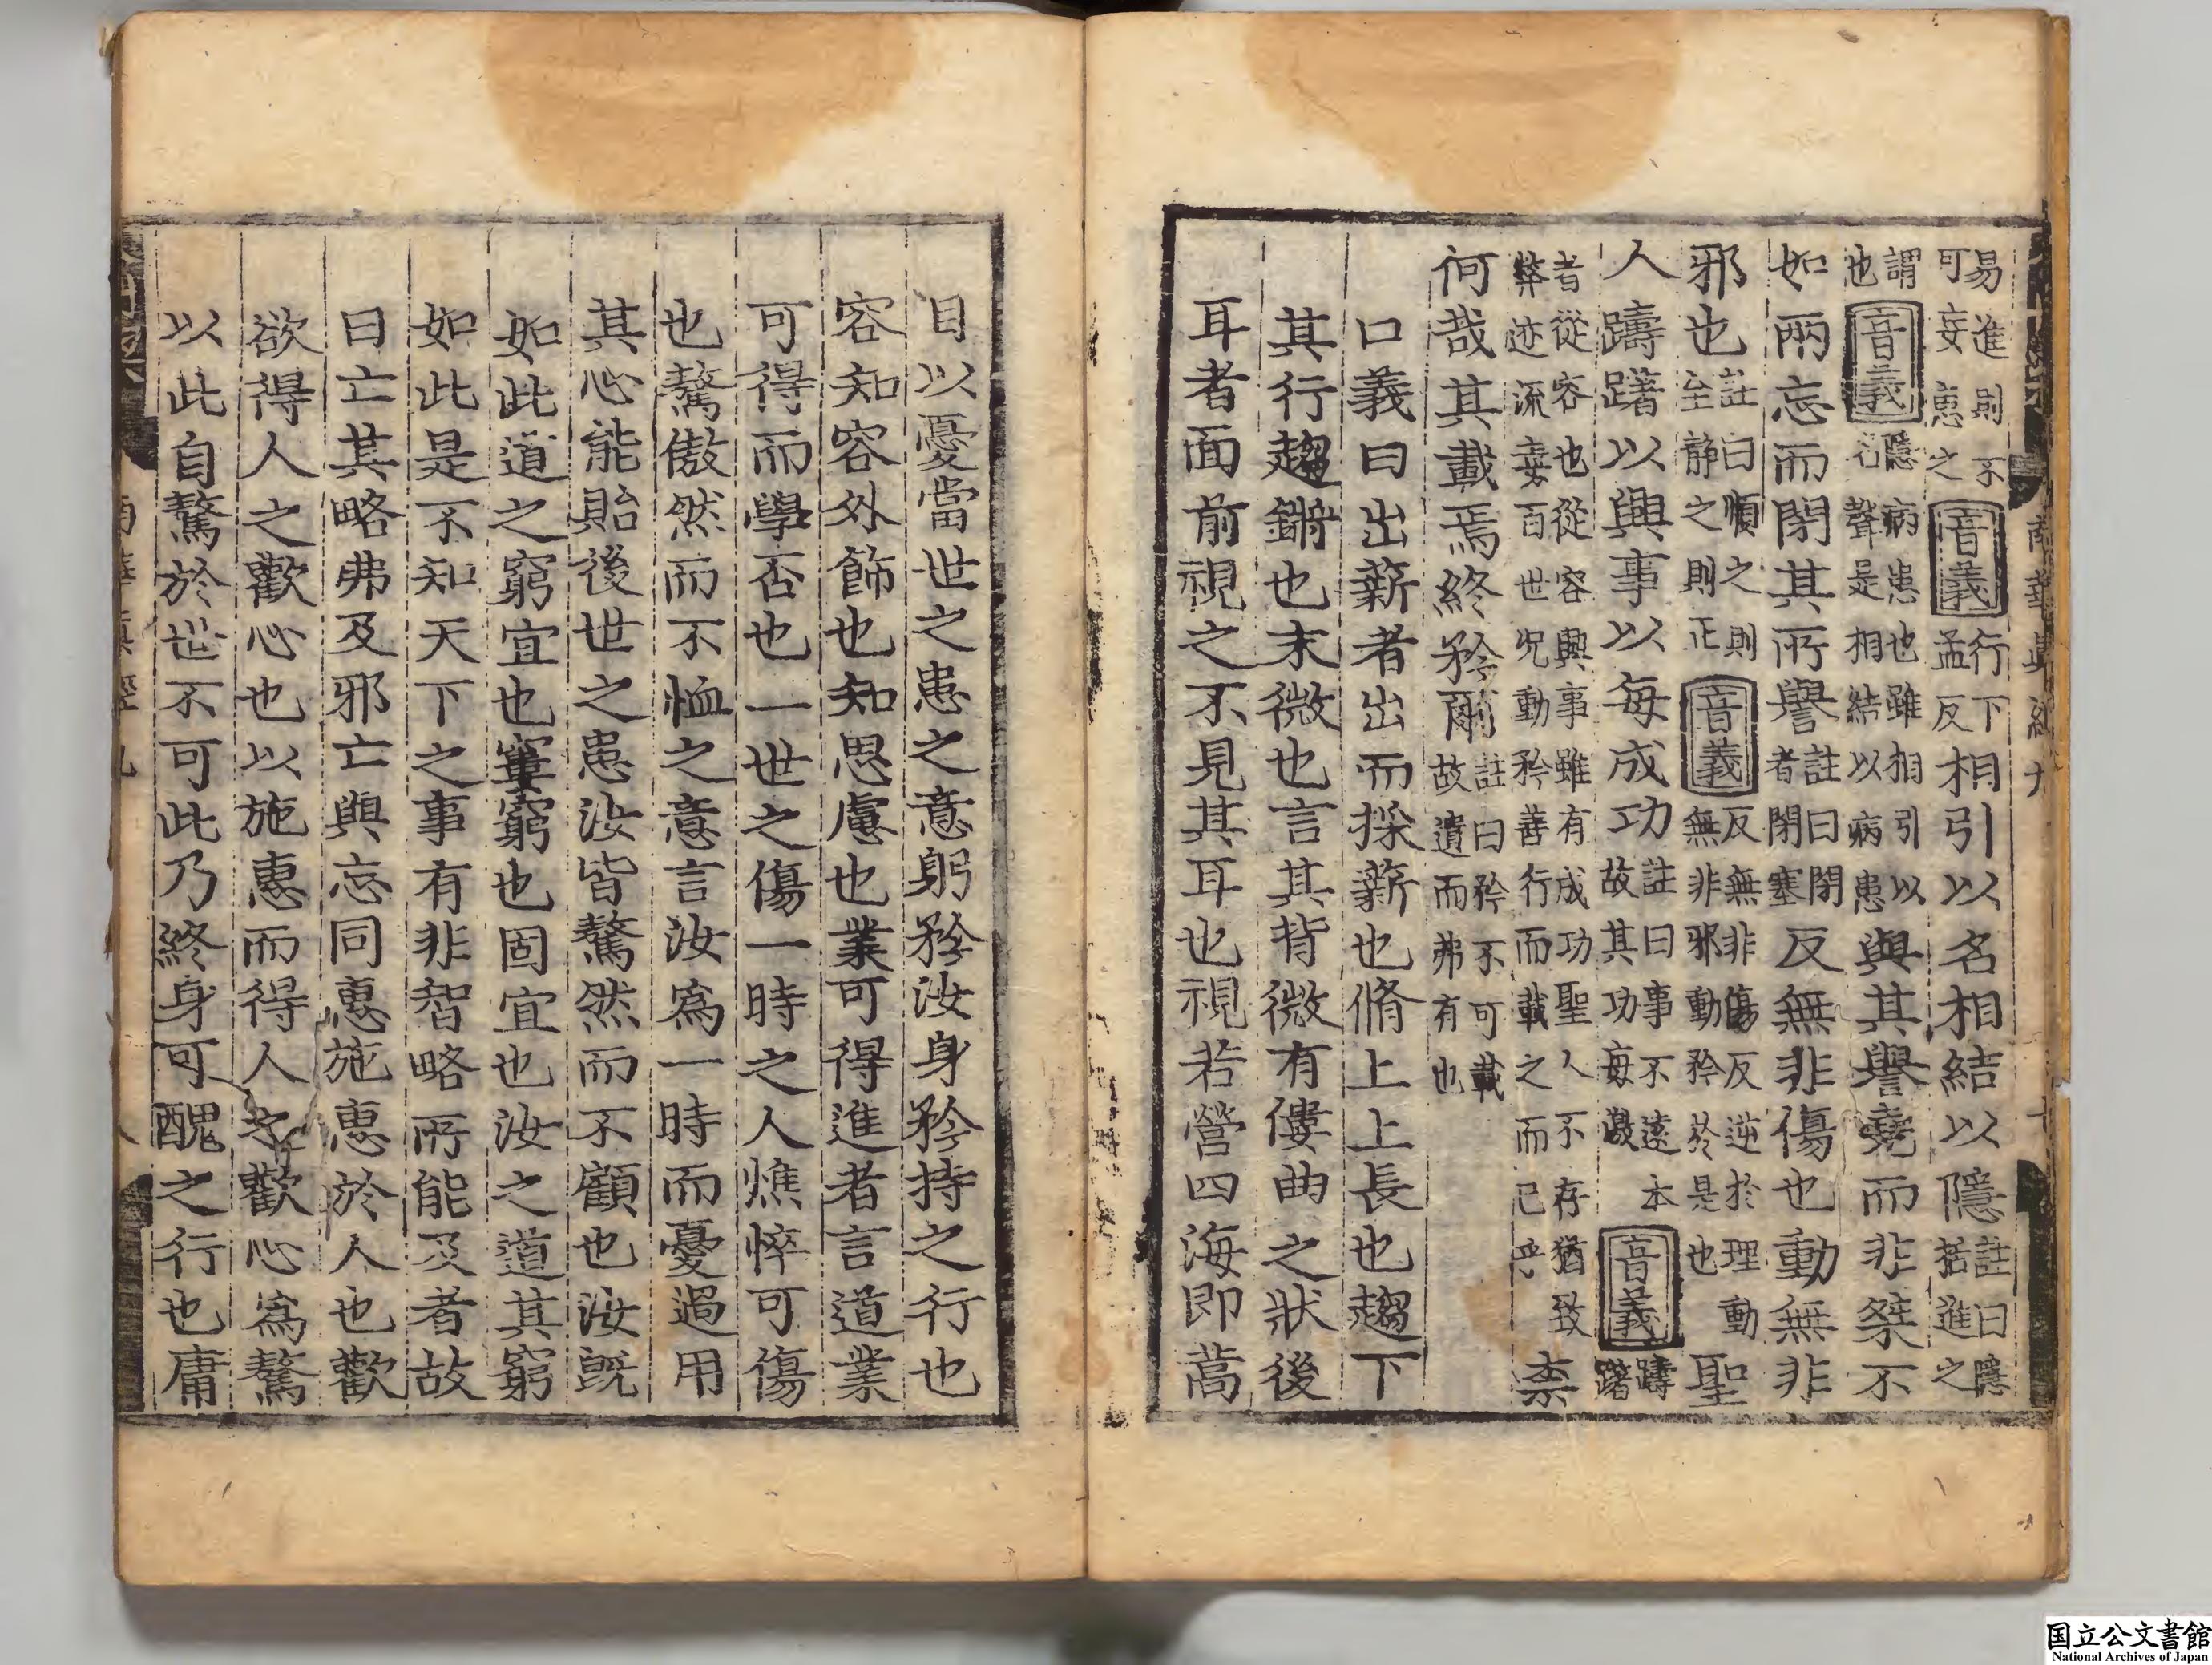 易進則不
可妄惠之
音義
行下
孟反
相引以名相結以隱
註曰隱
括進之
謂
也
音義
隱病患也雖相引以
名聲是相結以病患
與其譽堯而非桀不
如兩忘而閉其所譽
註曰閉
者閉塞
反無非傷也動無非
邪也
註曰順之則
至靜之則正
音義
反無非傷反逆於理動
無非邪動矜於是也
聖
人躊躇以興事以每成功
註曰事不遠本
故其功每成
音義
躊
躇
者從容也從容興事雖有成功聖人不存猶致
弊迹流妄百世況動矜善行而載之而已乎
柰
何哉其載焉終矜爾
註曰矜不可載
故遺而弗有也
口義曰出薪者出而採薪也脩上上長也趨下
其行趨鏘也末微也言其背微有僂曲之狀後
耳者面前視之不見其耳也視若營四海即蒿
目以憂當世之患之意躬矜汝身矜持之行也
容知容外飾也知思慮也業可得進者言道業
可得而學否也一世之傷一時之人憔悴可傷
也驁傲然而不恤之意言汝為一時而憂過用
其心能貽後世之患汝皆驁然而不顧也汝既
如此道之窮宜也窶窮也固宜也汝之道其窮
如此是不知天下之事有非智略所能及者故
曰亡其略弗及邪亡與忘同惠施惠於人也歡
欲得人之歡心也以施惠而得人之歡心為驁
以此自驁於世不可此乃終身可醜之行也庸
南華真經九
国立公文書館
National Archives of Japan